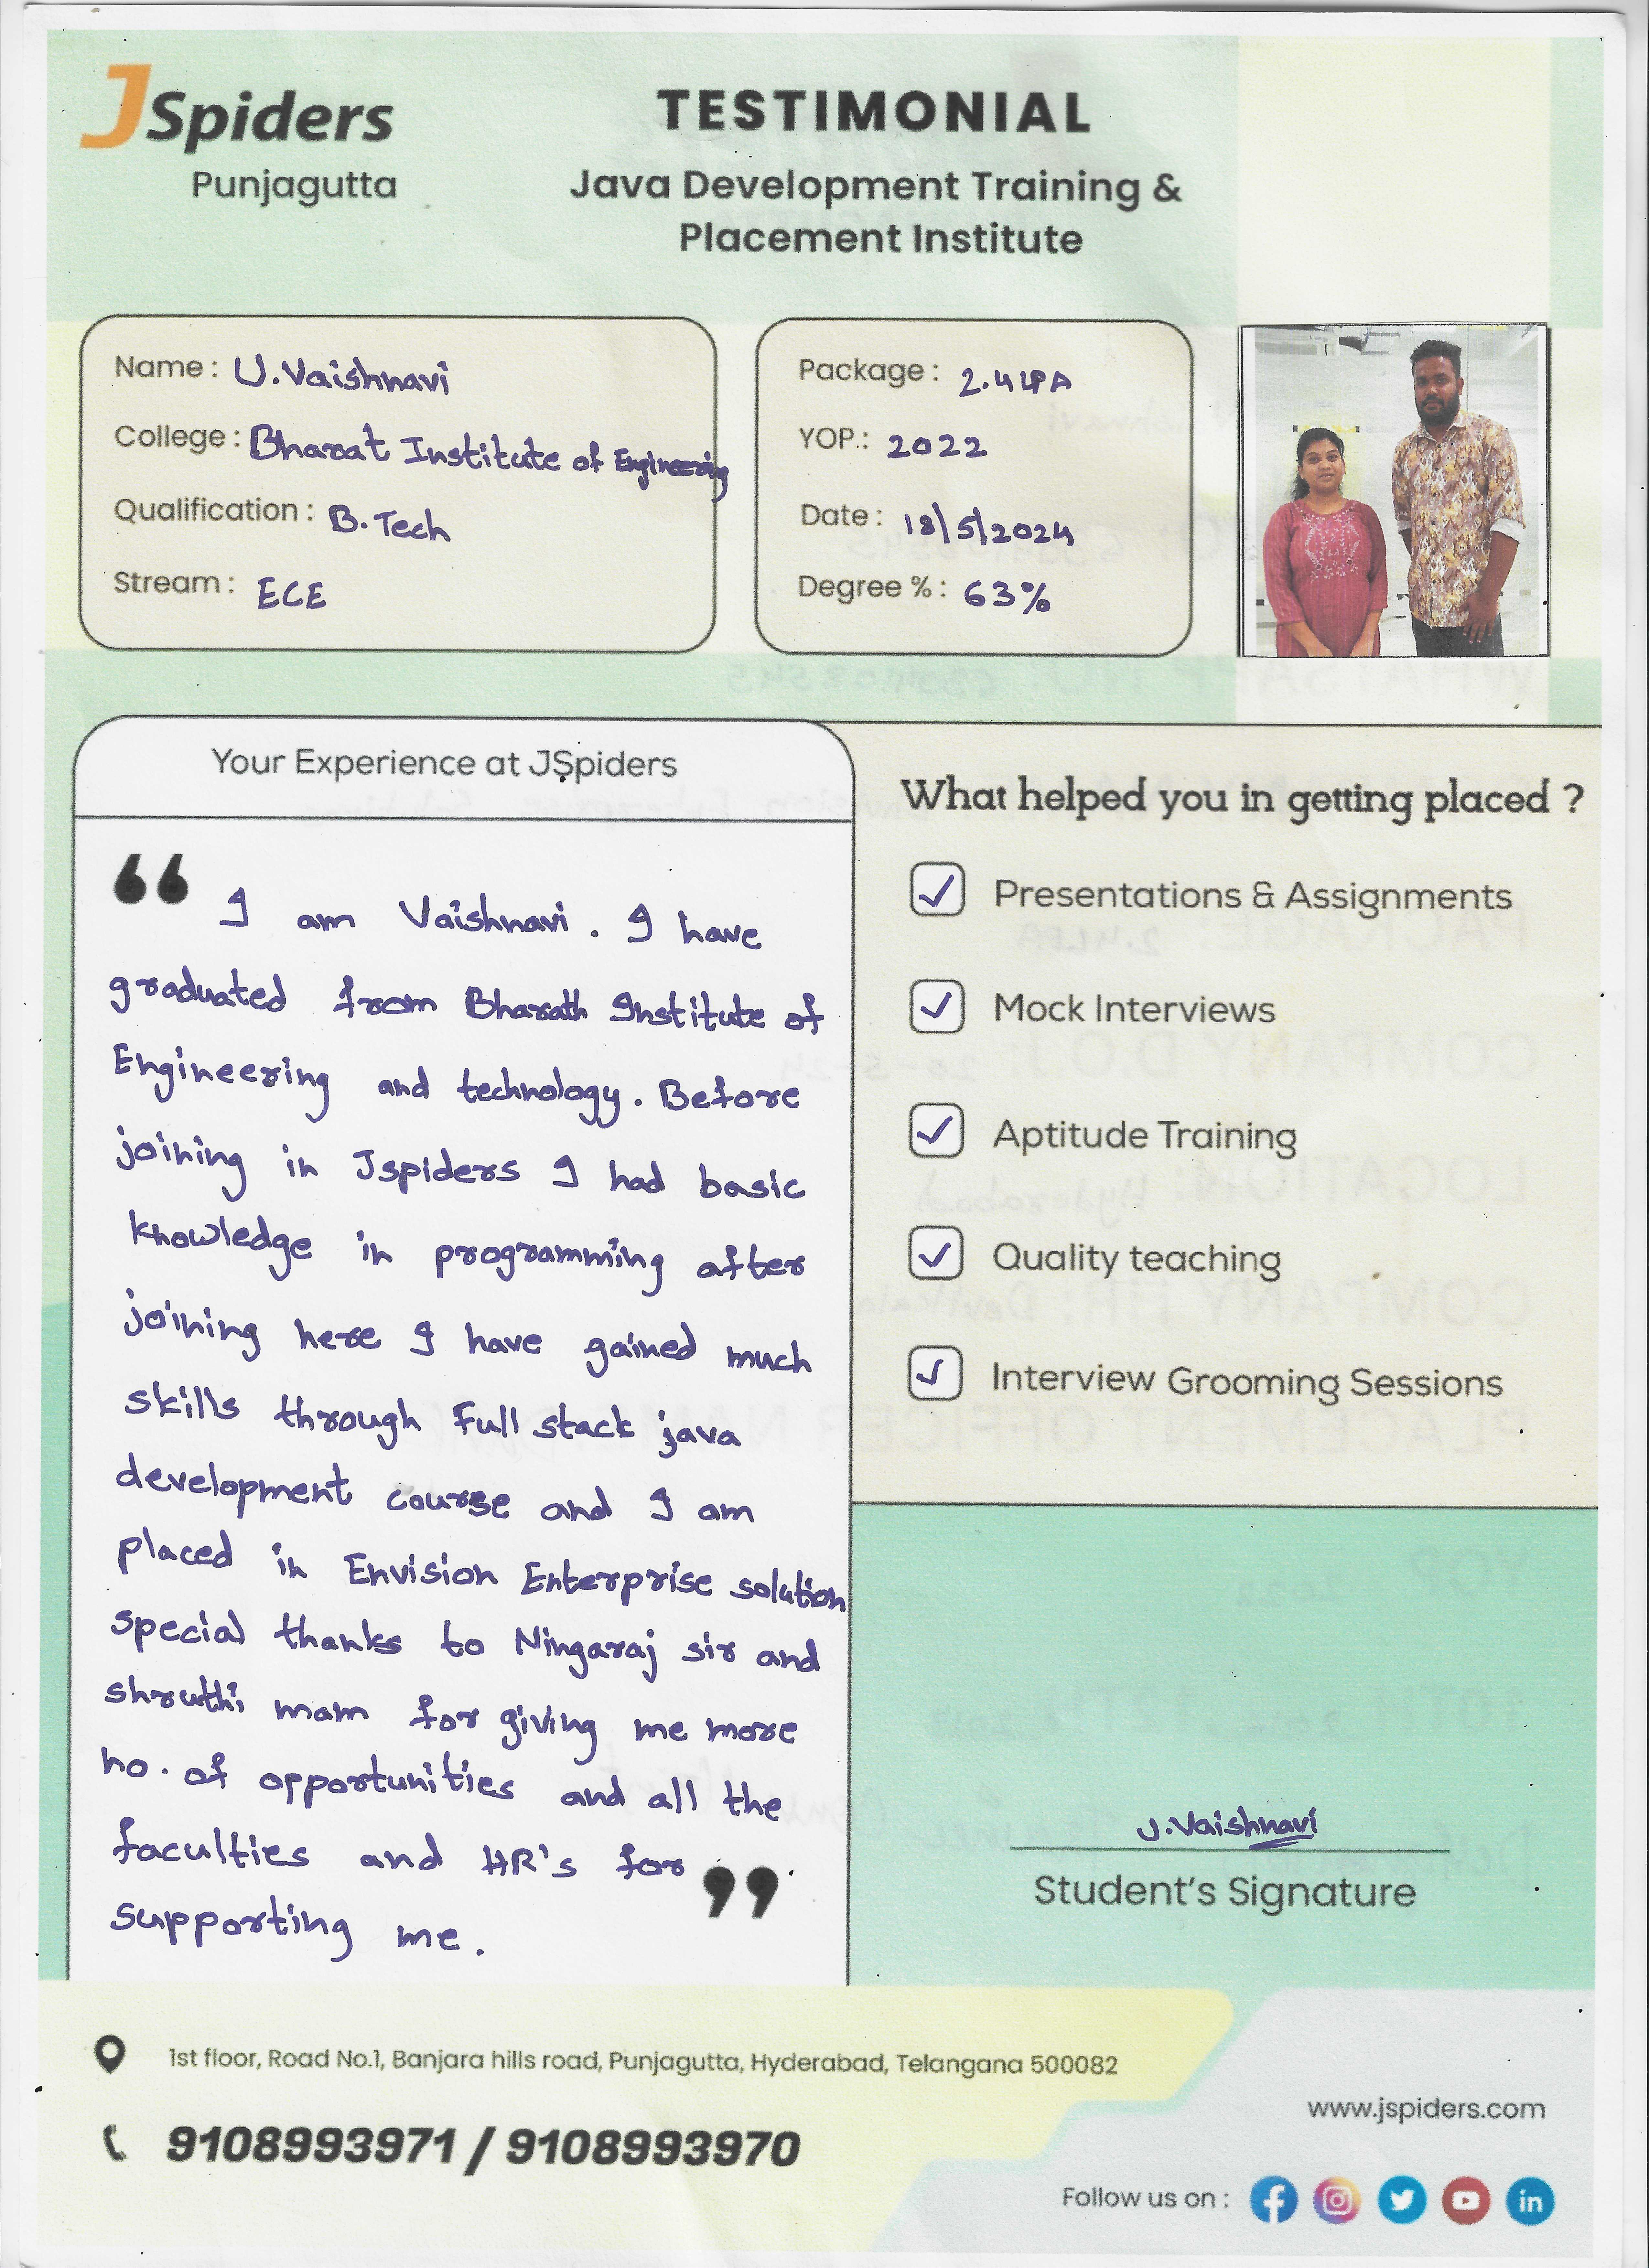 JSpiders
Punjagutta
TESTIMONIAL
Java Development Training &
Placement Institute
Name : U.Vaishnavi
College : Bharat Institute of Engineering
Qualification : B.Tech
Stream : ECE
Package : 2.4LPA
YOP.: 2022
Date : 18/5/2024
Degree % : 63%
Your Experience at JSpiders
“ I am Vaishnavi. I have
graduated from Bharath Institute of
Engineering and technology. Before
joining in Jspiders I had basic
knowledge in programming after
joining here I have gained much
skills through Full stack java
development course and I am
placed in Envision Enterprise solution
special thanks to Ningaraj sir and
shruthi mam for giving me more
no. of opportunities and all the
faculties and HR's for
supporting me. ”
What helped you in getting placed ?
✓ Presentations & Assignments
✓ Mock Interviews
✓ Aptitude Training
✓ Quality teaching
✓ Interview Grooming Sessions
U.Vaishnavi
Student's Signature
1st floor, Road No.1, Banjara hills road, Punjagutta, Hyderabad, Telangana 500082
9108993971 / 9108993970
www.jspiders.com
Follow us on :